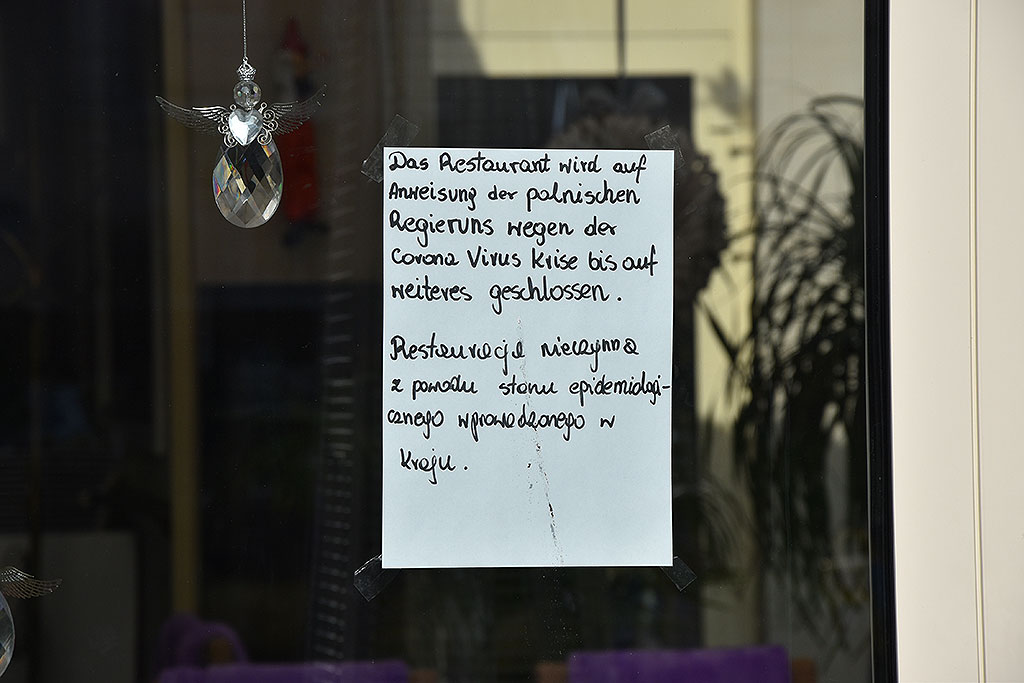 Das Restaurant wird auf
Anweisung der polnischen
Regierung wegen der
Corona Virus Krise bis auf
weiteres geschlossen.
Restauracja nieczynna
z powodu stanu epidemiologi-
cznego wprowadzonego w
kraju.